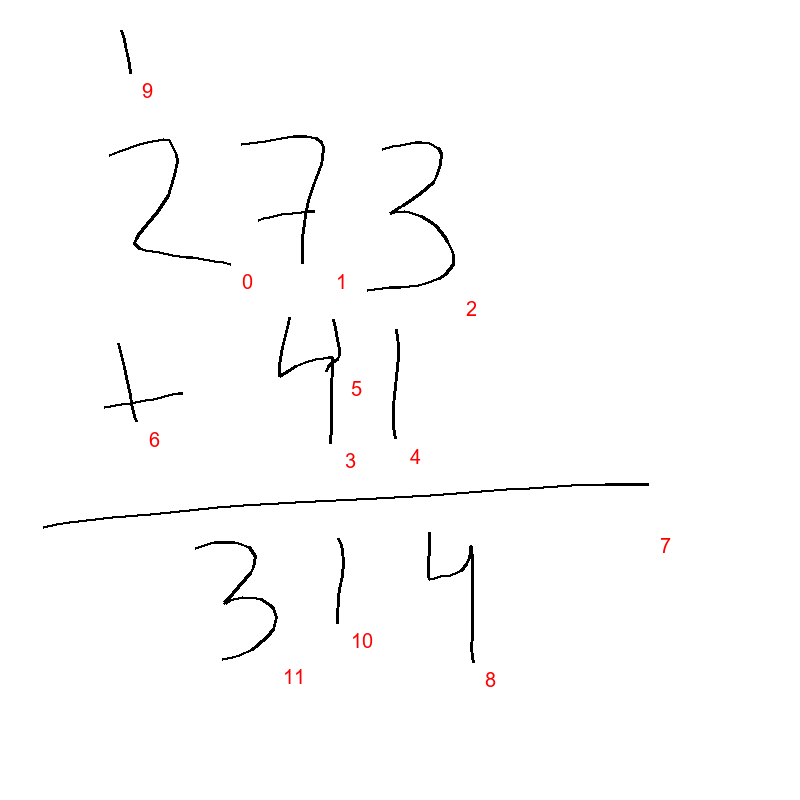 1
9
273
0 1 2
+ 41
5
6 3 4
7
314
10
11 8